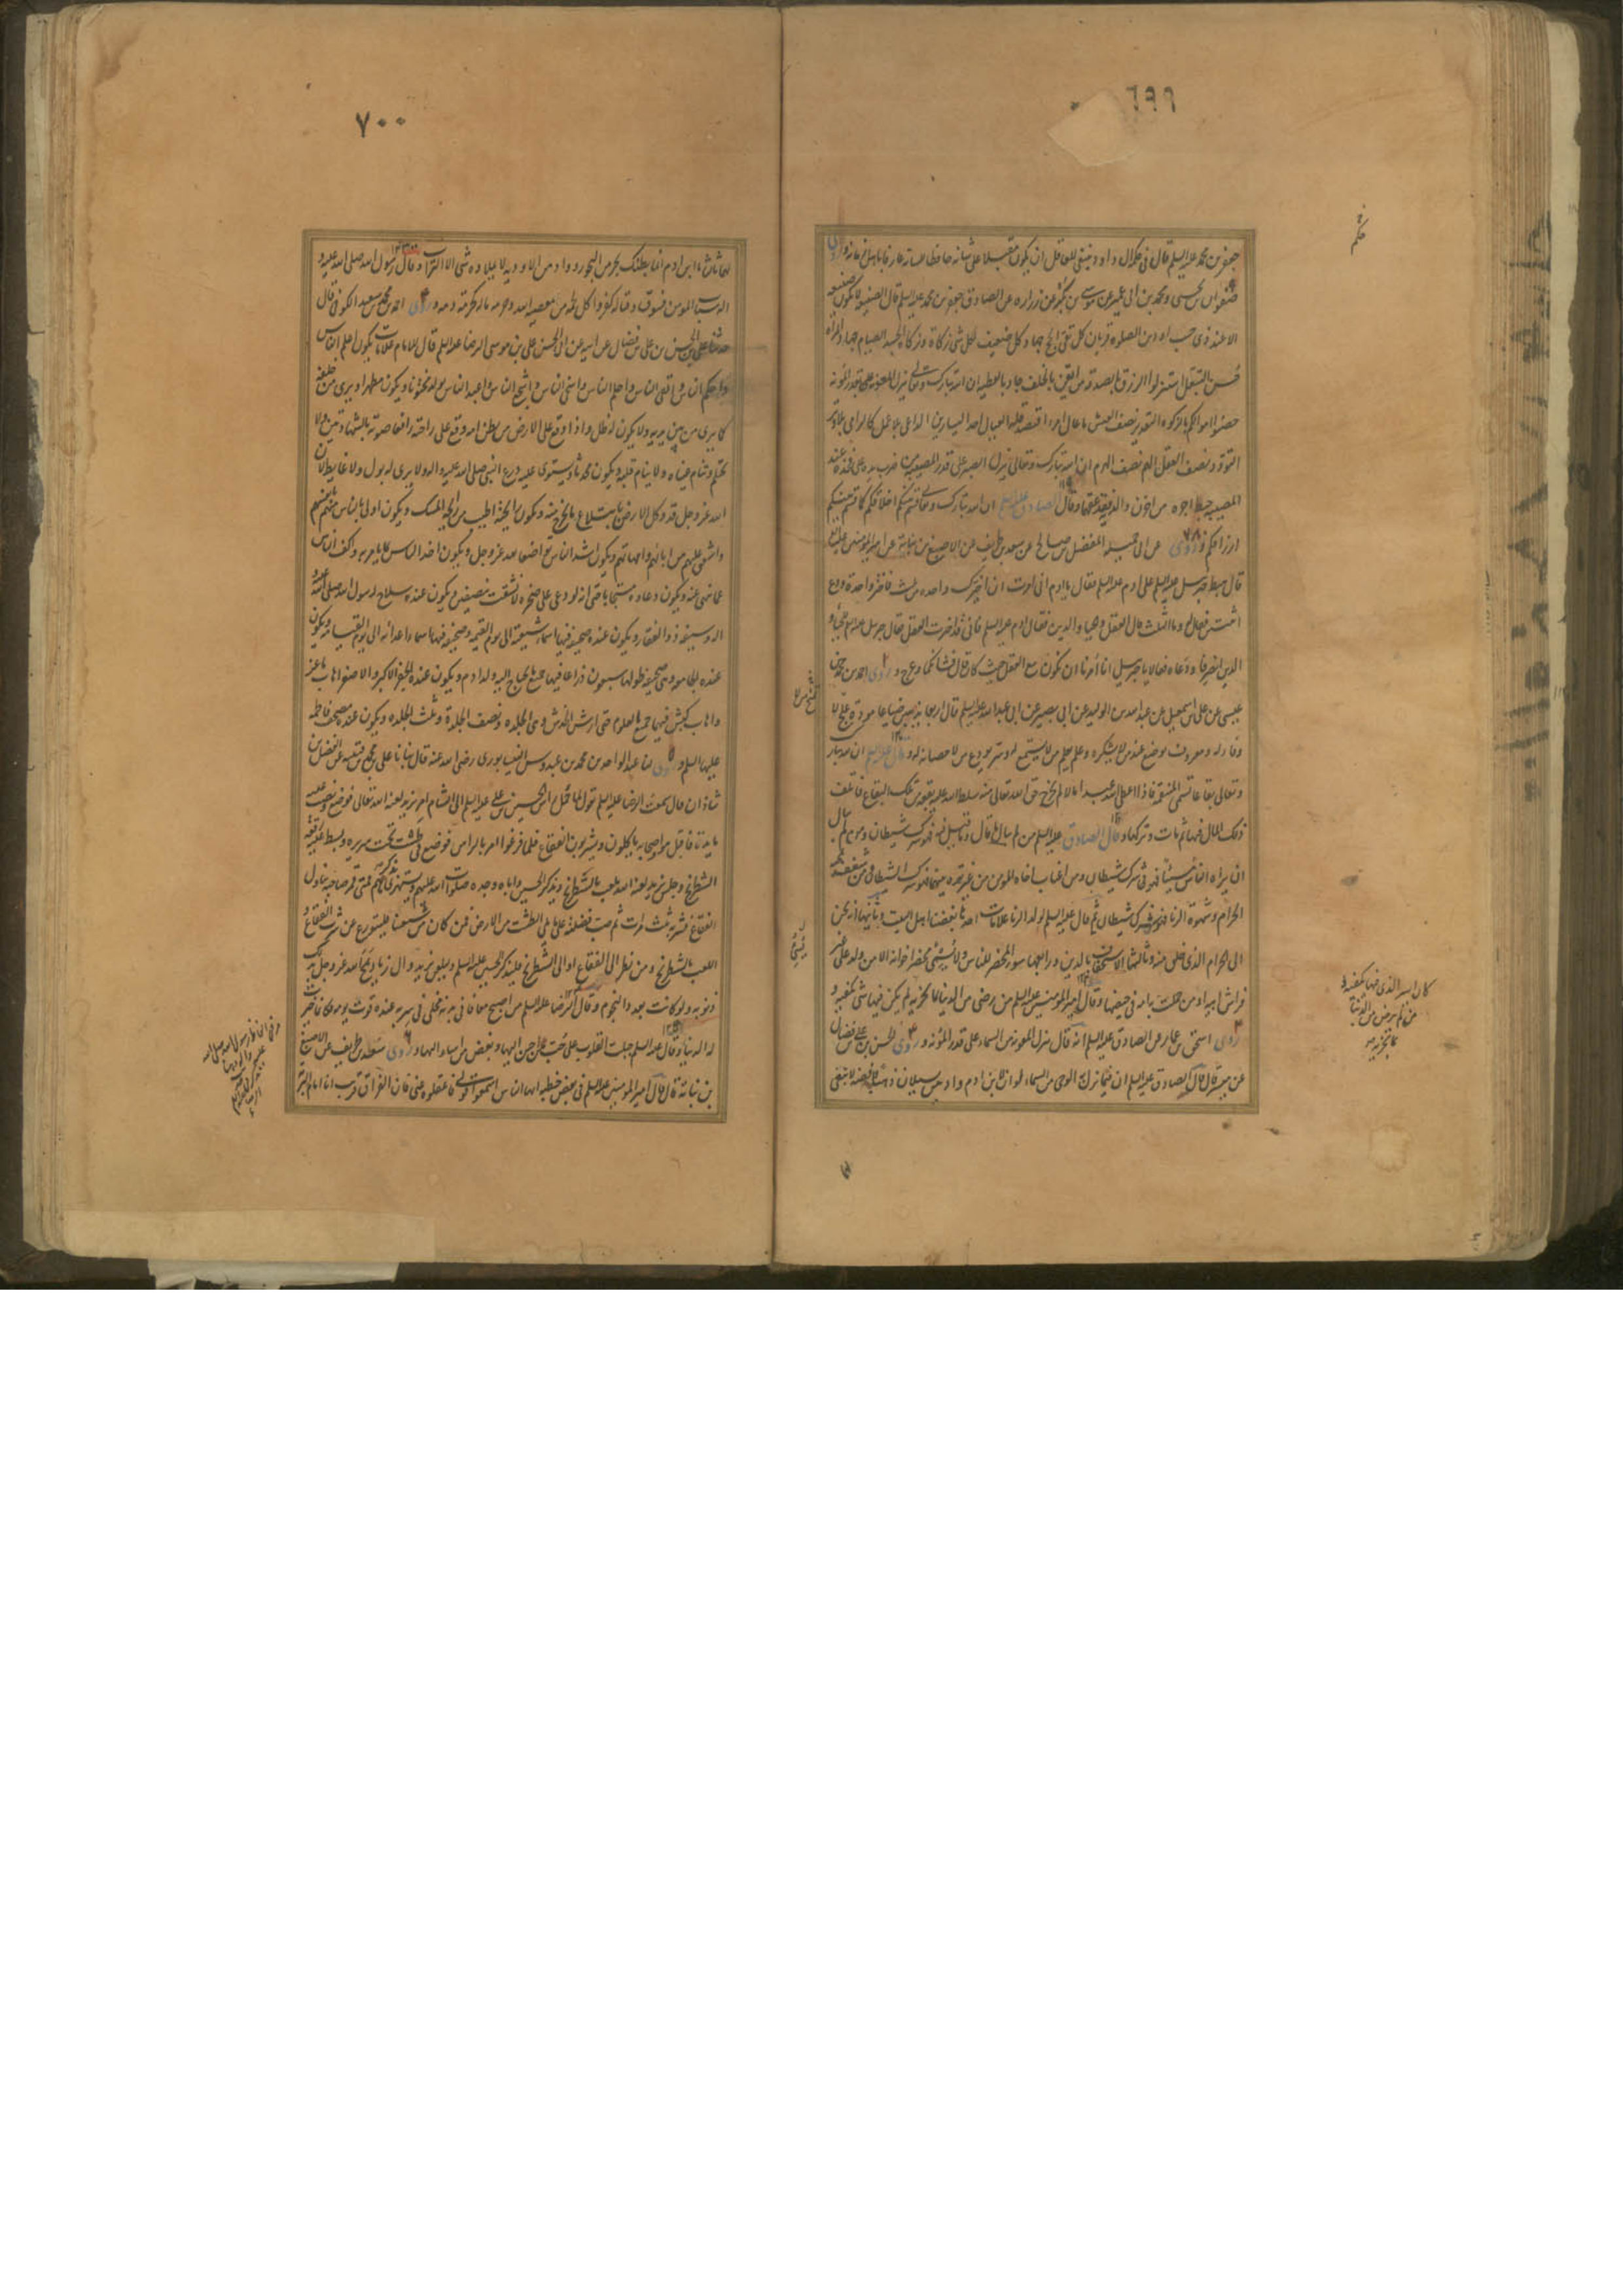 ٦٩٩
جعفر بن محمد عليه السلم قال في حكمة ال داود ينبغي للعاقل ان يكون مقبلا على شانه حافظا للسانه عارفا باهل زمانه وروى
صفوان بن يحيى ومحمد بن ابي عمير عن موسى بن بكر عن زراره عن الصادق جعفر بن محمد عليه السلم قال الصنيعه لا تكون صنيعه
الا عند ذي حسب او دين الصلوة قربان كل تقي الحج جهاد كل ضعيف لكل شي زكاة وزكاة الجسد الصيام جهاد المراه
حسن التبعل استنزلوا الرزق بالصدقه من ايقن بالخلف جاد بالعطيه ان الله تبارك وتعالى ينزل المعونه على قدر المونه
حصنوا اموالكم بالزكوة التقدير نصف العيش ما عال امرء اقتصد قلة العيال احد اليسارين الداعي بلا عمل كالرامي بلا وتر
التودد نصف العقل الهم نصف الهرم ان الله تبارك وتعالى ينزل الصبر على قدر المصيبه من ضرب يده على فخذه عند
المصيبه حبط اجره من احزن والديه فقد عقهما وقال الصادق عليه السلم ان الله تبارك وتعالى قسم بينكم اخلاقكم كما قسم بينكم
ارزاقكم وروى عن ابي جميله المفضل بن صالح عن سعد بن طريف عن الاصبغ بن نباتة عن امير المؤمنين عليه السلم
قال هبط جبرئيل عليه السلم على ادم عليه السلم فقال يا ادم اني امرت ان اخيرك واحده من ثلث فاختر واحدة ودع
اثنتين فقال وما الثلث قال العقل والحياء والدين فقال ادم عليه السلم فاني قد اخترت العقل فقال جبرئيل عليه السلم للحياء و
الدين انصرفا ودعاه فقالا يا جبرئيل انا امرنا ان نكون مع العقل حيث كان قال فشانكما وعرج وروى احمد بن محمد بن
عيسى عن علي بن اسمعيل عن عبد الله بن الوليد عن ابي بصير عن ابي عبد الله عليه السلم قال اربعة يذهبن ضياعا مودة تمنح من لا
وفاء له ومعروف يوضع عند من لا يشكره وعلم يعلم من لا يستمع له وسر يودع من لا حصانه له وقال عليه السلم ان لله تبارك
وتعالى بقاعا تسمى المنتقمة فاذا اعطى الله عبدا مالا لم يخرج حق الله تعالى منه سلط الله عليه بقعه من تلك البقاع فاتلف
ذلك المال فيها ثم مات وتركها وقال الصادق عليه السلم من لم يبال ما قال وما قيل فيه فهو شرك شيطان ومن لم يبال
ان يراه الناس مسيئا فهو شرك شيطان ومن اغتاب اخاه المومن من غير ترة بينهما فهو شرك الشيطان ومن شغف بمحبة
الحرام وشهوة الزنا فهو شرك شيطان ثم قال عليه السلم لولد الزنا علامات احدها بغضنا اهل البيت وثانيها ان يحن
الى الحرام الذي خلق منه وثالثها الاستخفاف بالدين ورابعها سوء المحضر للناس ولا يسيئ محضر اخوانه الا من ولد على غير
فراش ابيه او من حملت به امه في حيضها وقال امير المؤمنين عليه السلم من رضي من الدنيا بما يجزيه لم يكن فيها شي يكفيه و
روى اسحق بن عمار عن الصادق عليه السلم انه قال تنزل المعونه من السماء على قدر المؤنه وروى الحسن بن علي بن فضال
عن ميسر قال قال الصادق عليه السلم ان فيما نزل به الوحي من السماء لو ان لابن ادم واديين يسيلان ذهبا وفضه لابتغى
كان ايسر الذي فيها يكفيه و
من لم يرض من الدنيا
بما يجزيه
٧٠٠
لهما ثالثا يا ابن ادم انما بطنك بحر من البحور وواد من الاوديه لا يملاءه شي الا التراب وقال رسول الله صلى الله عليه و
اله سباب المومن فسوق وقتاله كفر واكل لحمه من معصية الله وحرمة ماله كحرمة دمه وروى احمد بن محمد بن سعيد الكوفي قال
حدثنا علي بن الحسن بن علي بن فضال عن ابيه عن ابي الحسن علي بن موسى الرضا عليه السلم قال للامام علامات يكون اعلم الناس
واحكم الناس واتقى الناس واحلم الناس واسخى الناس واشجع الناس واعبد الناس يولد مختونا ويكون مطهرا ويرى من خلفه
كما يرى من بين يديه ولا يكون له ظل واذا وقع على الارض من بطن امه وقع على راحتيه رافعا صوته بالشهادتين ولا
يحتلم وتنام عيناه ولا ينام قلبه ويكون محدثا ويستوي عليه درع النبي صلى الله عليه واله ولا يرى له بول ولا غايط لان
الله عز وجل قد وكل الارض بابتلاع ما يخرج منه ويكون رايحته اطيب من رايحة المسك ويكون اولى بالناس منهم بانفسهم
واشفق عليهم من ابائهم وامهاتهم ويكون اشد الناس تواضعا لله عز وجل ويكون اخذ الناس بما يامر به واكف الناس
عما ينهى عنه ويكون دعاوه مستجابا حتى انه لو دعى على صخره لانشقت بنصفين ويكون عنده سلاح رسول الله صلى الله عليه و
اله وسيفه ذو الفقار ويكون عنده صحيفه فيها اسماء شيعته الى يوم القيمه وصحيفه فيها اسماء اعدائه الى يوم القيامه ويكون
عنده الجامعه وهي صحيفه طولها سبعون ذراعا فيها جميع ما يحتاج اليه ولد ادم ويكون عنده الجفر الاكبر والاصغر اهاب ماعز
واهاب كبش فيهما جميع العلوم حتى ارش الخدش وحتى الجلده ونصف الجلدة وثلث الجلده ويكون عنده مصحف فاطمه
عليها السلم وروى لنا عبد الواحد بن محمد بن عبدوس النيسابوري رضي الله عنه قال حدثنا علي بن محمد بن قتيبه عن الفضل بن
شاذان قال سمعت الرضا عليه السلم يقول لما حمل راس الحسين بن علي عليه السلم الى الشام امر يزيد لعنه الله تعالى فوضع ونصب عليه
مايدة فاقبل هو واصحابه ياكلون ويشربون الفقاع فلما فرغوا امر بالراس فوضع في طشت تحت سريره وبسط عليه رقعة
الشطرنج وجلس يزيد لعنه الله يلعب بالشطرنج ويذكر الحسين واباه وجده صلوات الله عليهم ويستهزئ بذكرهم فمتى قمر صاحبه تناول
الفقاع فشربه ثلث مرات ثم صب فضلته على ما يلي الطشت من الارض فمن كان من شيعتنا فليتورع عن شرب الفقاع و
اللعب بالشطرنج ومن نظر الى الفقاع او الى الشطرنج فليذكر الحسين عليه السلم وليلعن يزيد وال زياد يمح الله عز وجل بذلك
ذنوبه ولو كانت بعدد النجوم وقال الرضا عليه السلم من اصبح معافا في بدنه مخلى في سربه عنده قوت يومه فكانما خيرت
له الدنيا وقال عليه السلم جبلت القلوب على حب من احسن اليها وبغض من اساء اليها وروى سعد بن طريف عن الاصبغ
بن نباتة قال قال امير المومنين عليه السلم في بعض خطبه ايها الناس اسمعوا قولي فاعقلوه عني فان الفراق قريب انا امام البرية